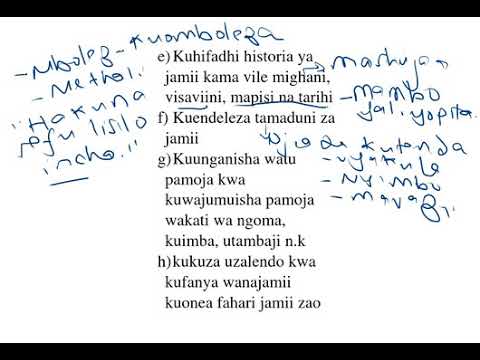 - Mbolez - Kuomboleza
- Methali
"Hakuna
refu lisilo
ncha."
e) Kuhifadhi historia ya
jamii kama vile mighani,
visaviini, mapisi na tarihi
f) Kuendeleza tamaduni za
jamii
g) Kuunganisha watu
pamoja kwa
kuwajumuisha pamoja
wakati wa ngoma,
kuimba, utambaji n.k
h) kukuza uzalendo kwa
kufanya wanajamii
kuonea fahari jamii zao
mashujaa
- mambo
yaliyopita
njia za kutenda
- vyakula
- Nyimbo
- mavazi